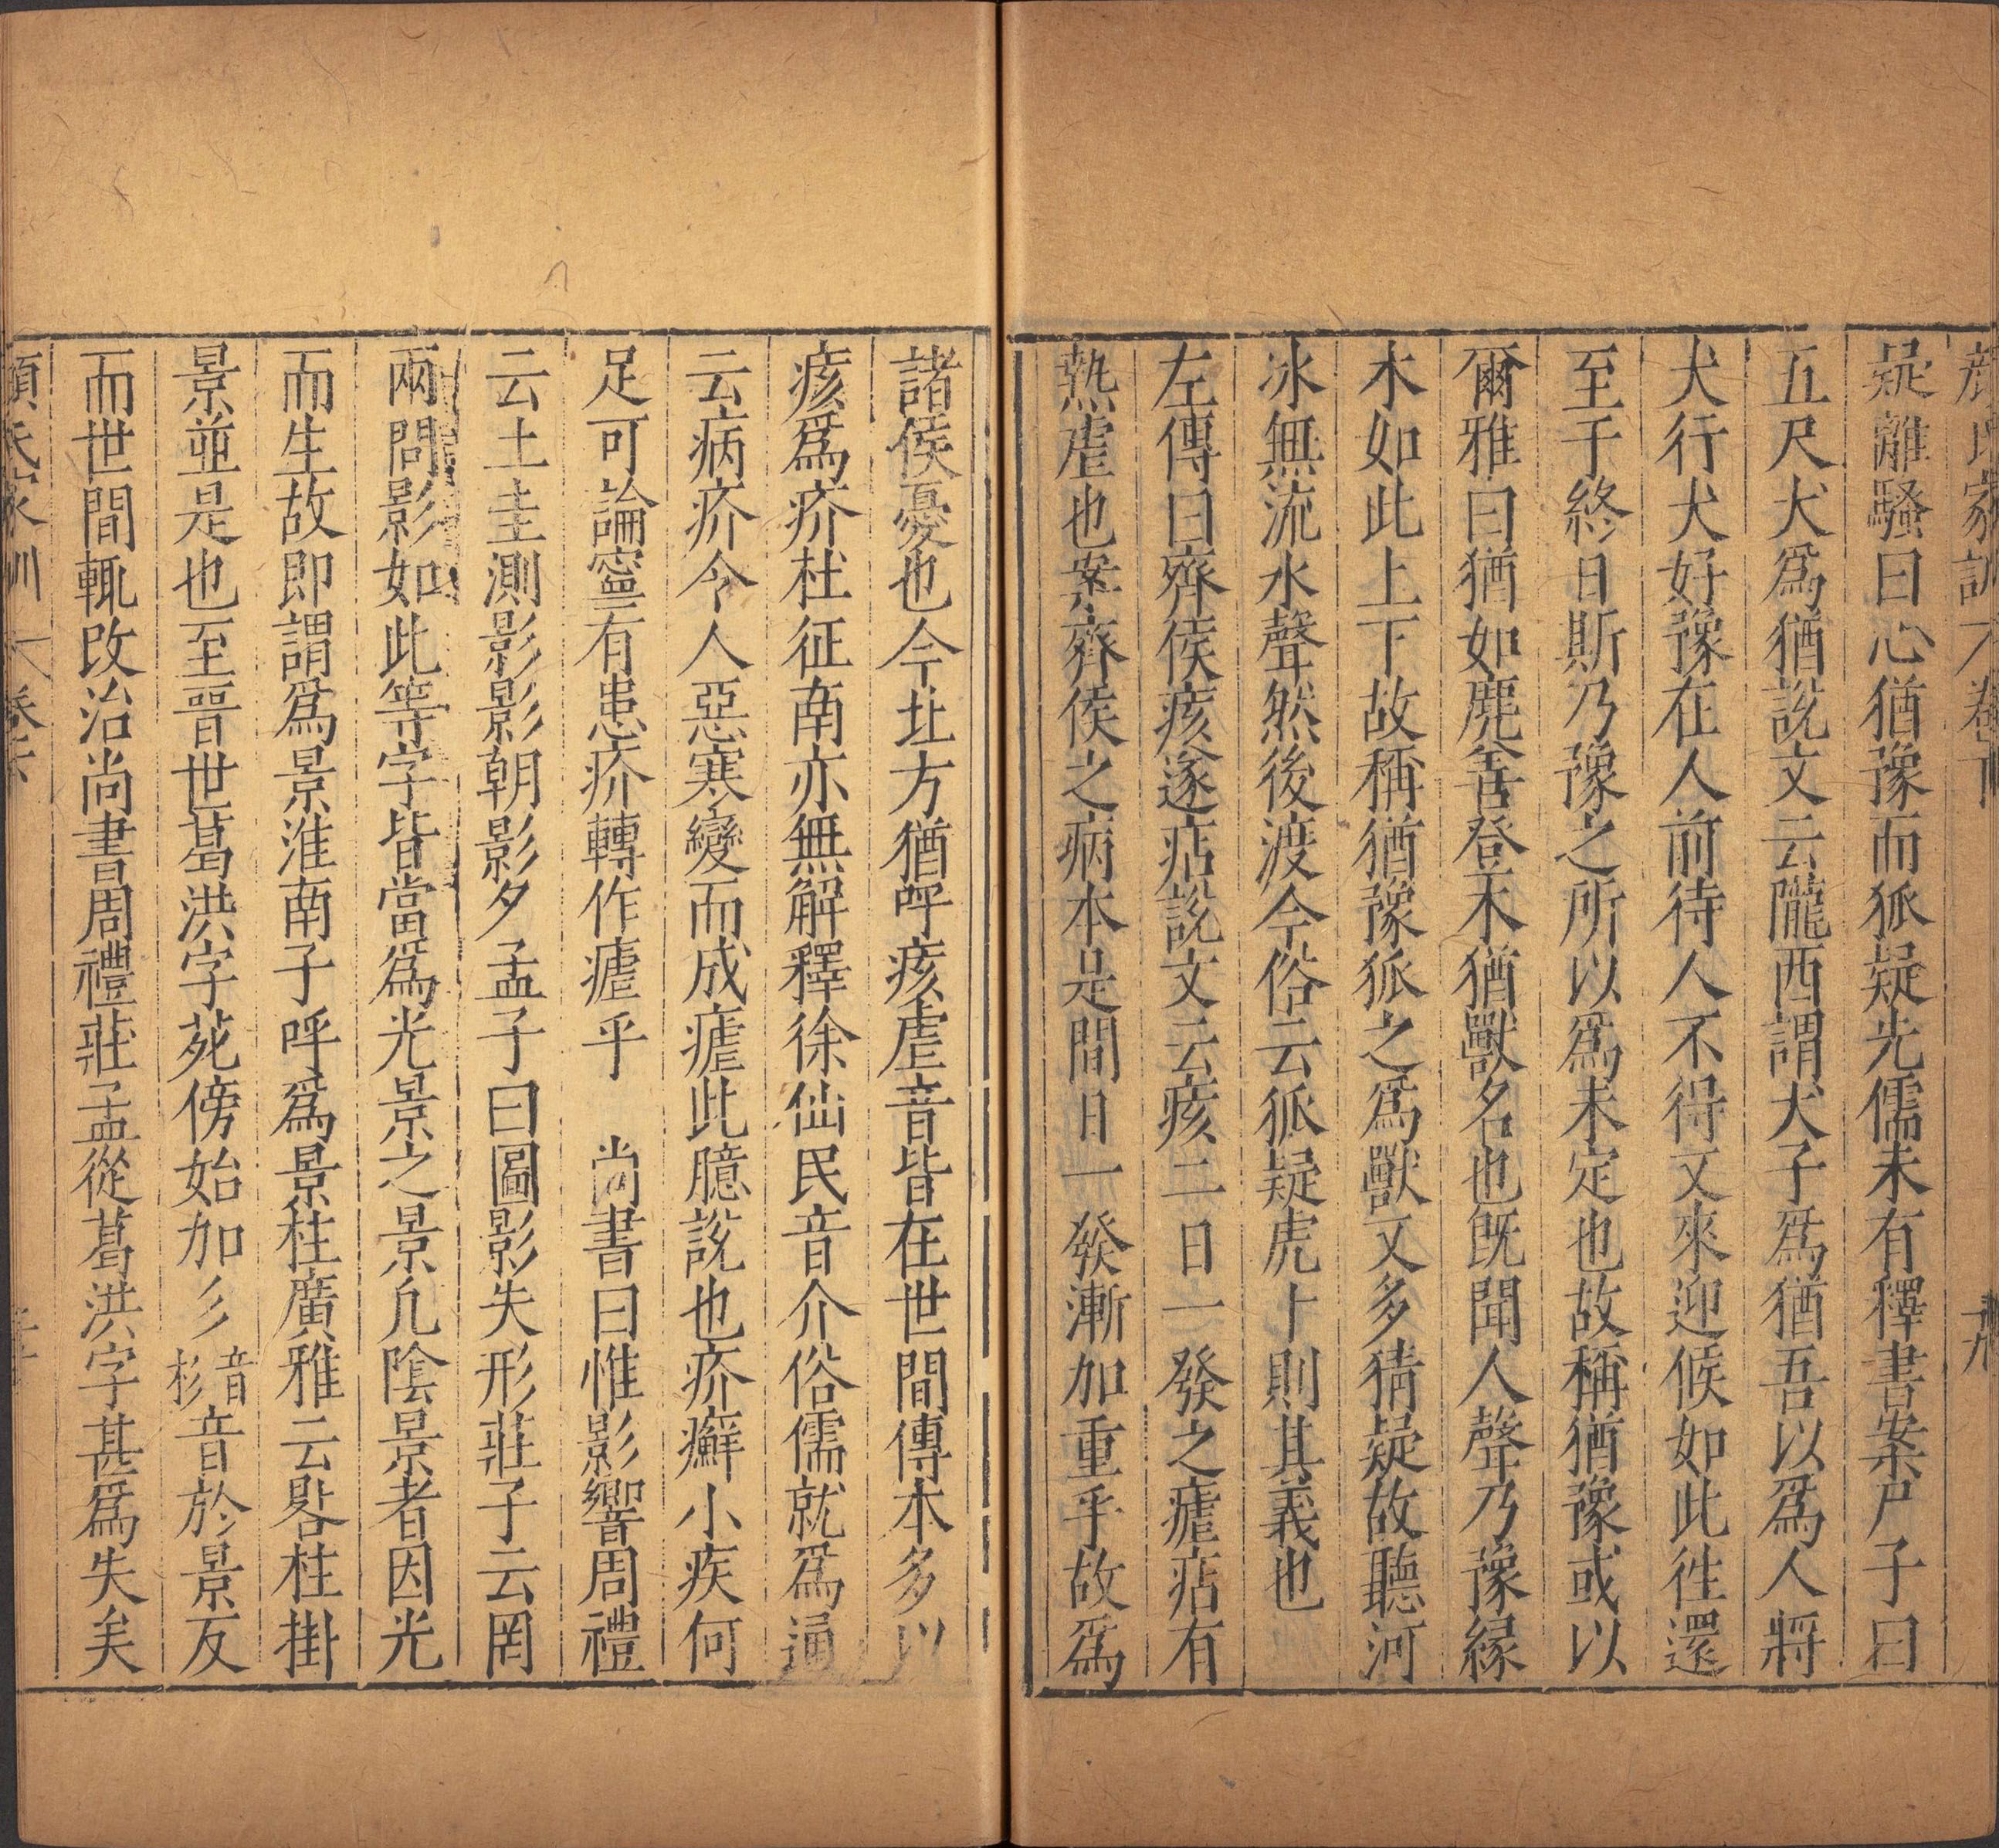 顏氏家訓 卷下 十九
疑離騷曰心猶豫而狐疑先儒未有釋書案尸子曰
五尺犬爲猶說文云隴西謂犬子爲猶吾以爲人將
犬行犬好豫在人前待人不得又來迎候如此徃還
至于終日斯乃豫之所以爲未定也故稱猶豫或以
爾雅曰猶如麂善登木猶獸名也旣聞人聲乃豫緣
木如此上下故稱猶豫狐之爲獸又多猜疑故聽河
冰無流水聲然後渡今俗云狐疑虎卜則其義也
左傳曰齊侯痎遂痁說文云痎二日一發之瘧痁有
熱瘧也案齊侯之病本是間日一發漸加重乎故爲
諸侯憂也今北方猶呼痎瘧音皆在世間傳本多以
痎爲疥杜征南亦無解釋徐仙民音介俗儒就爲通
云病疥令人惡寒變而成瘧此臆說也疥癬小疾何
足可論寧有患疥轉作瘧乎 尚書曰惟影響周禮
云土圭測影影朝影夕孟子曰圖影失形莊子云罔
兩問影如此等字皆當爲光景之景凢陰景者因光
而生故即謂爲景淮南子呼爲景柱廣雅云晷柱掛
景並是也至晋世葛洪字苑傍始加彡音杉音於景反
而世間輒改治尚書周禮莊孟從葛洪字甚爲失矣
顏氏家訓 卷下